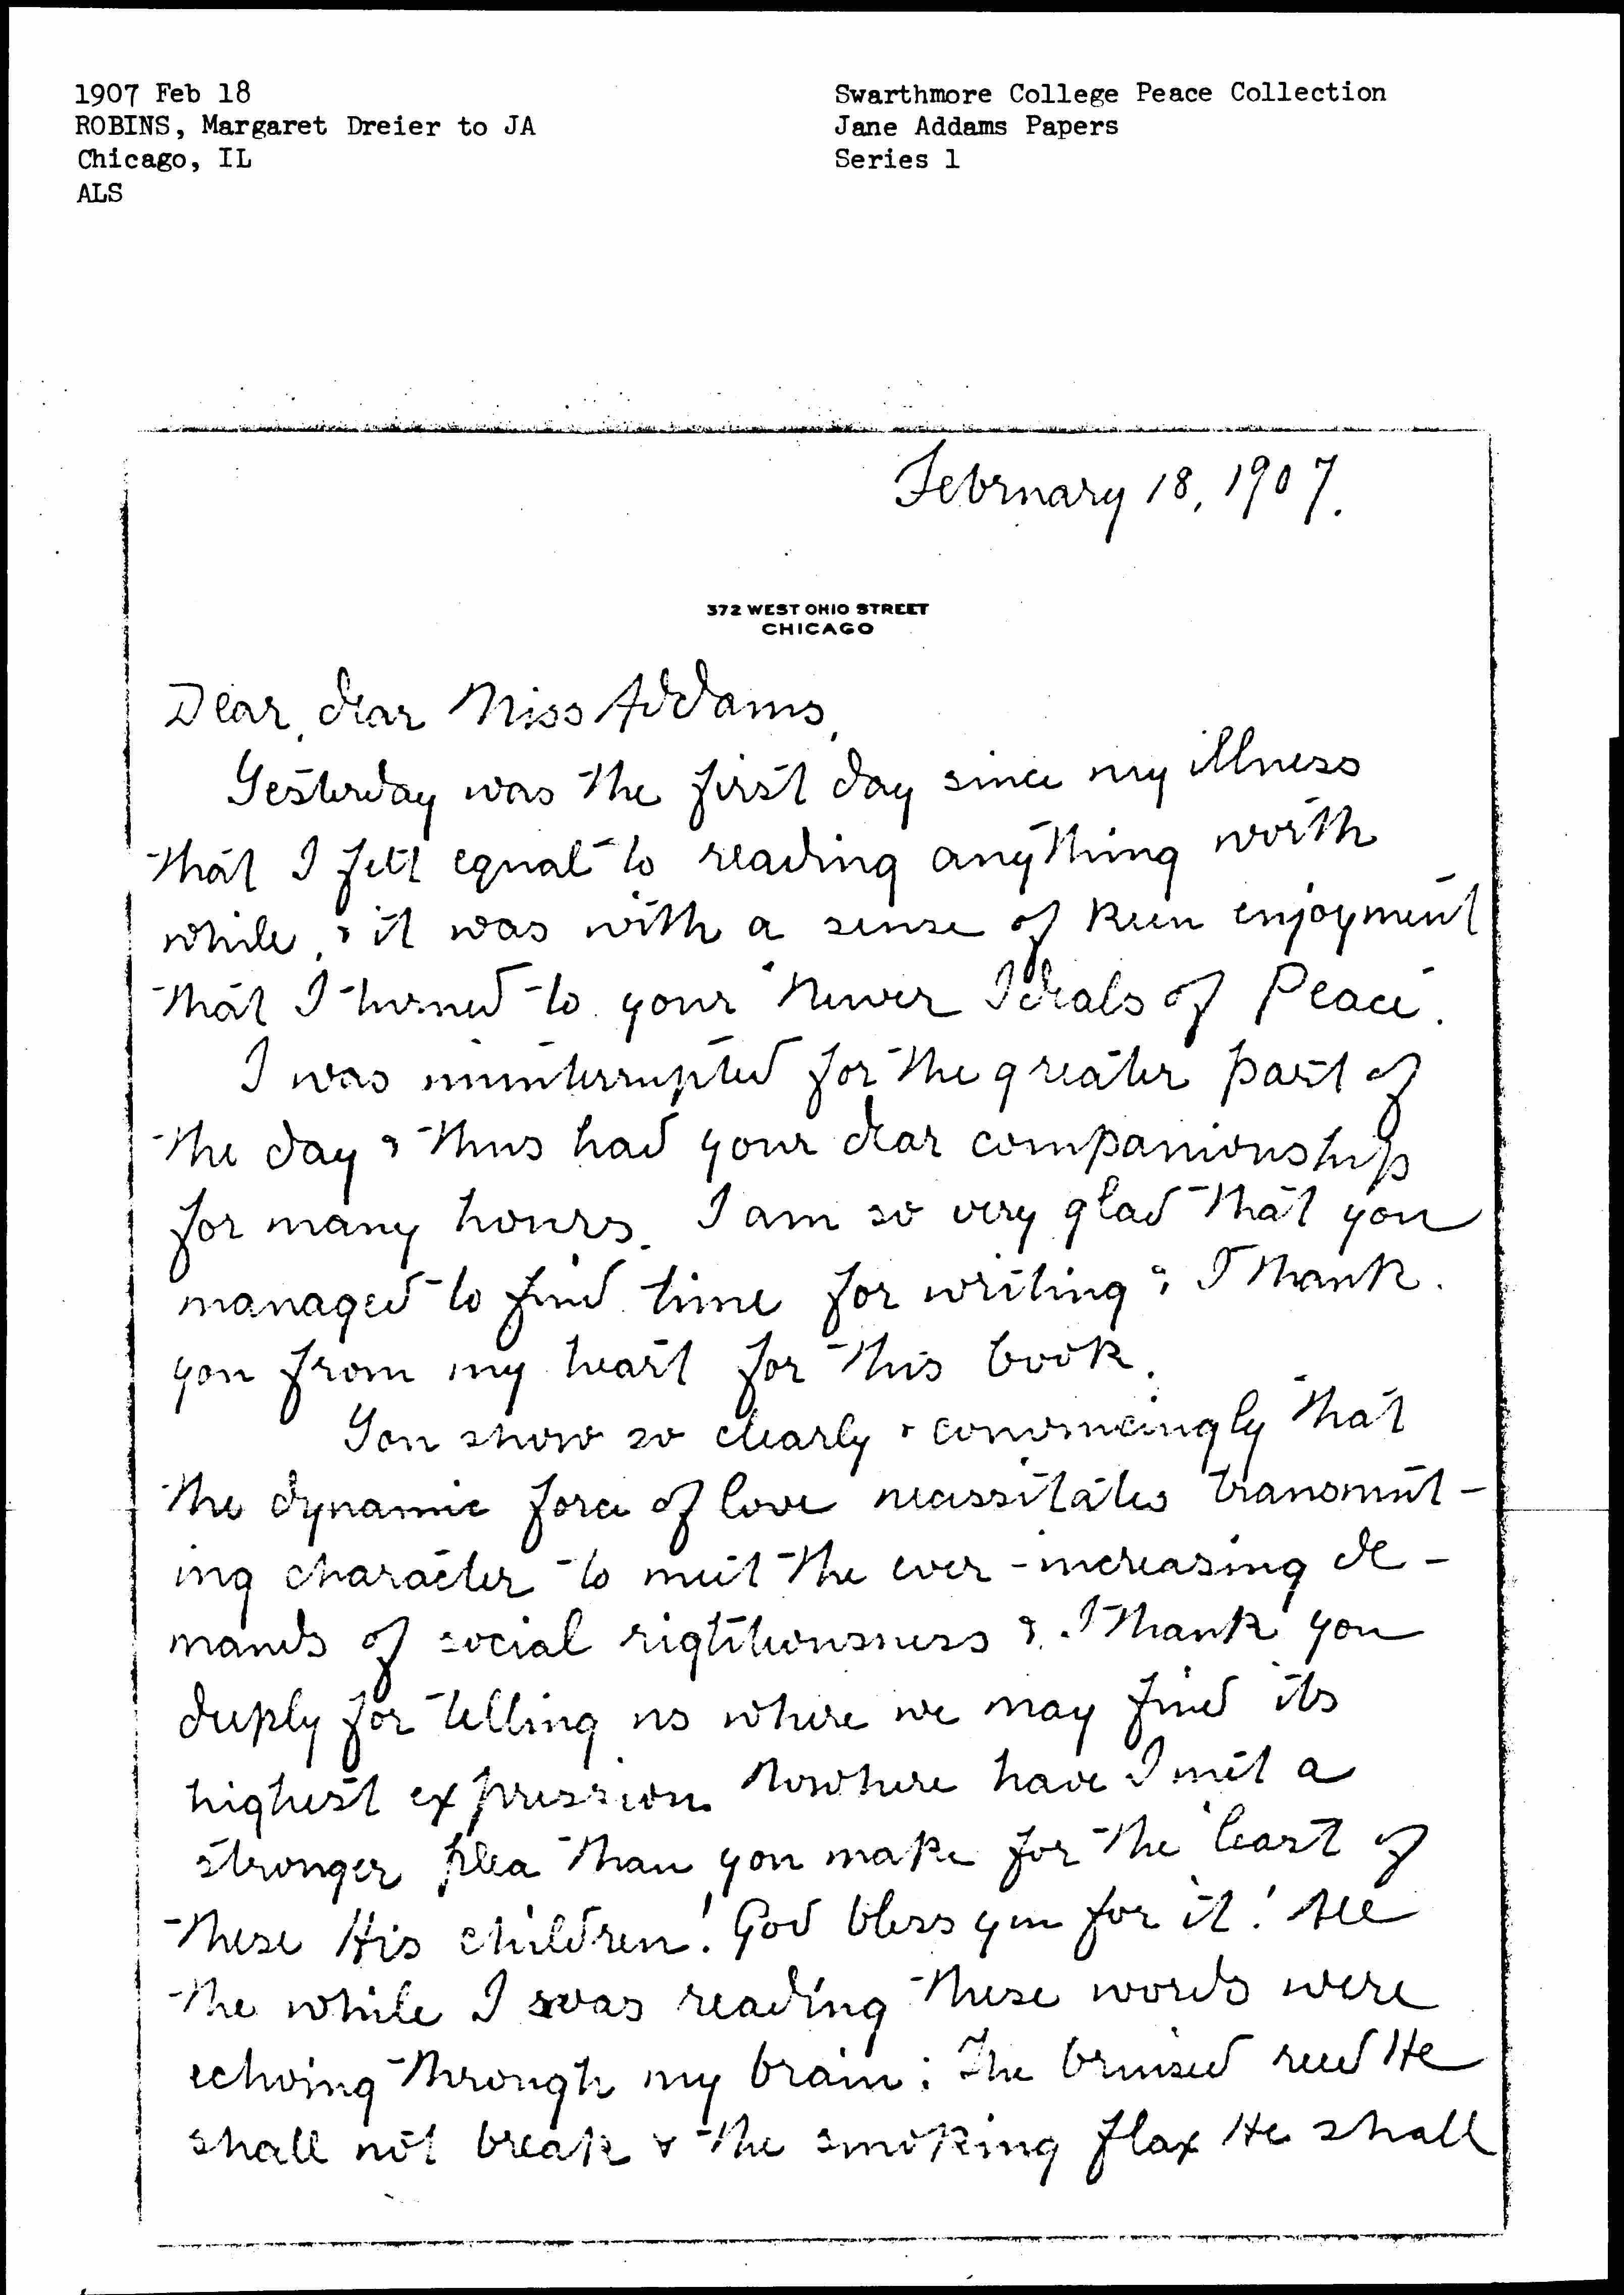 1907 Feb 18
ROBINS, Margaret Dreier to JA
Chicago, IL
ALS
Swarthmore College Peace Collection
Jane Addams Papers
Series 1
February 18, 1907.
372 WEST OHIO STREET
CHICAGO
Dear, dear Miss Addams,
Yesterday was the first day since my illness
that I felt equal to reading anything worth
while, & it was with a sense of keen enjoyment
that I turned to your "Newer Ideals of Peace".
I was uninterrupted for the greater part of
the day & thus had your dear companionship
for many hours. I am so very glad that you
managed to find time for writing & I thank
you from my heart for this book.
You show so clearly & convincingly that
the dynamic force of love necessitates transmut-
ing character to meet the ever-increasing de-
mands of social rightiousness & I thank you
deeply for telling us where we may find its
highest expression. Nowhere have I met a
stronger plea than you make for the least of
these His children! God bless you for it! All
the while I was reading these words were
echoing through my brain: The bruised reed He
shall not break & the smoking flax He shall